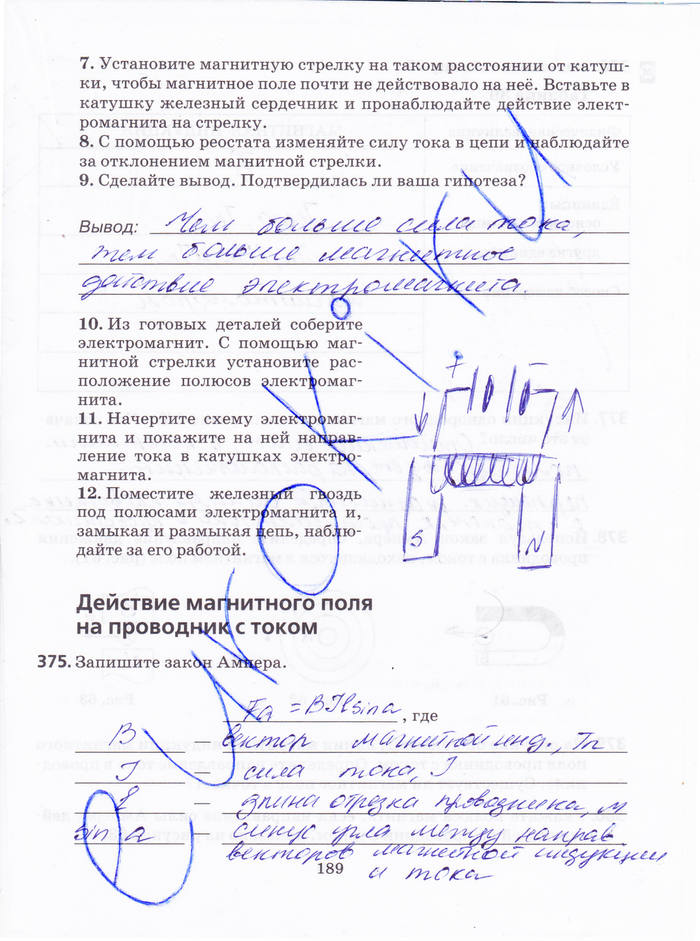 7. Установите магнитную стрелку на таком расстоянии от катуш-
ки, чтобы магнитное поле почти не действовало на неё. Вставьте в
катушку железный сердечник и пронаблюдайте действие элект-
ромагнита на стрелку.
8. С помощью реостата изменяйте силу тока в цепи и наблюдайте
за отклонением магнитной стрелки.
9. Сделайте вывод. Подтвердилась ли ваша гипотеза?
Вывод: Чем больше сила тока,
тем больше магнитное
действие электромагнита.
10. Из готовых деталей соберите
электромагнит. С помощью маг-
нитной стрелки установите рас-
положение полюсов электромаг-
нита.
11. Начертите схему электромаг-
нита и покажите на ней направ-
ление тока в катушках электро-
магнита.
12. Поместите железный гвоздь
под полюсами электромагнита и,
замыкая и размыкая цепь, наблю-
дайте за его работой.
+ -
S N
Действие магнитного поля
на проводник с током
375. Запишите закон Ампера.
Fa = BIlsina, где
B – вектор магнитной инд., Тл
I – сила тока, I
l – длина отрезка проводника, м
sin a – синус угла между направ
векторов магнитной индукции
и тока
189